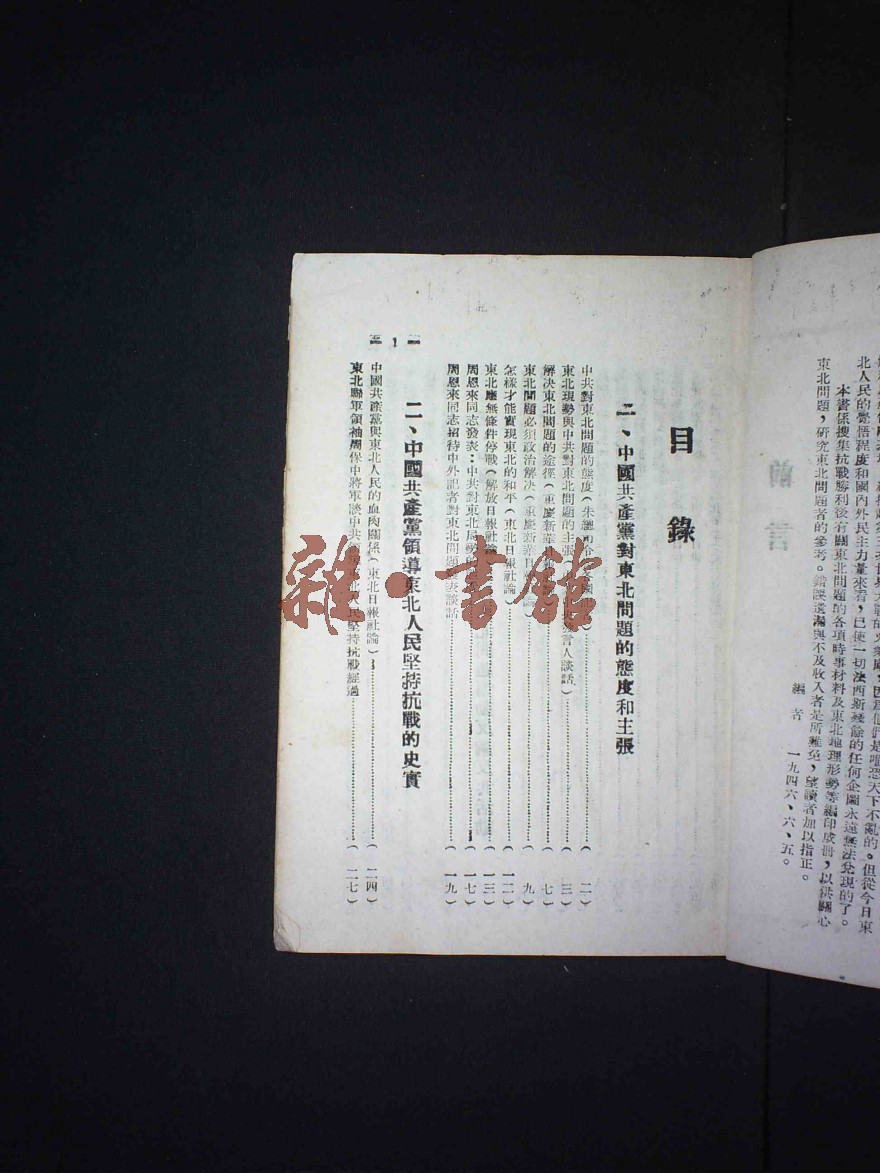 北人民的覺悟程度和國內外民主力量來看，已使一切法西斯殘餘的任何企圖永遠無法兌現的了。
本書係搜集抗戰勝利後有關東北問題的各項時事材料及東北地理形勢等編印成冊，以供關心
東北問題，研究東北問題者的參考。錯誤遺漏與不及收入者是所難免，望讀者加以指正。
編者 一九四六、六、五。
前言
目錄
一、中國共產黨對東北問題的態度和主張
中共對東北問題的態度（朱總司令
（二）
東北現勢與中共對東北問題的主張
言人談話）（三）
解決東北問題的途徑（重慶新華日
（七）
東北問題必須政治解決（重慶新華日
（九）
怎樣才能實現東北的和平（東北日報社論）（一二）
東北應無條件停戰（解放日報社論）（一三）
周恩來同志發表：中共對東北局勢
（一七）
周恩來同志招待中外記者對東北問題發表談話（一九）
二、中國共產黨領導東北人民堅持抗戰的史實
中國共產黨與東北人民的血肉關係（東北日報社論）（二四）
東北聯軍領袖周保中將軍談中共領導東北人民堅持抗戰經過（二七）
1
雜·書館